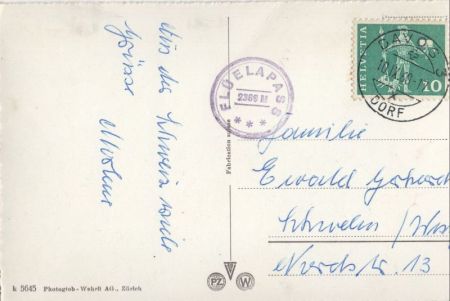 Aus der Schweiz viele
Grüsse
FLÜELAPASS
2389 M
***
HELVETIA
10
DAVOS
DORF
Familie
Ewald
Schwelm
Nordstr. 13
Fabrication suisse
k 5645 Photoglob - Wehrli AG., Zürich
PZ W